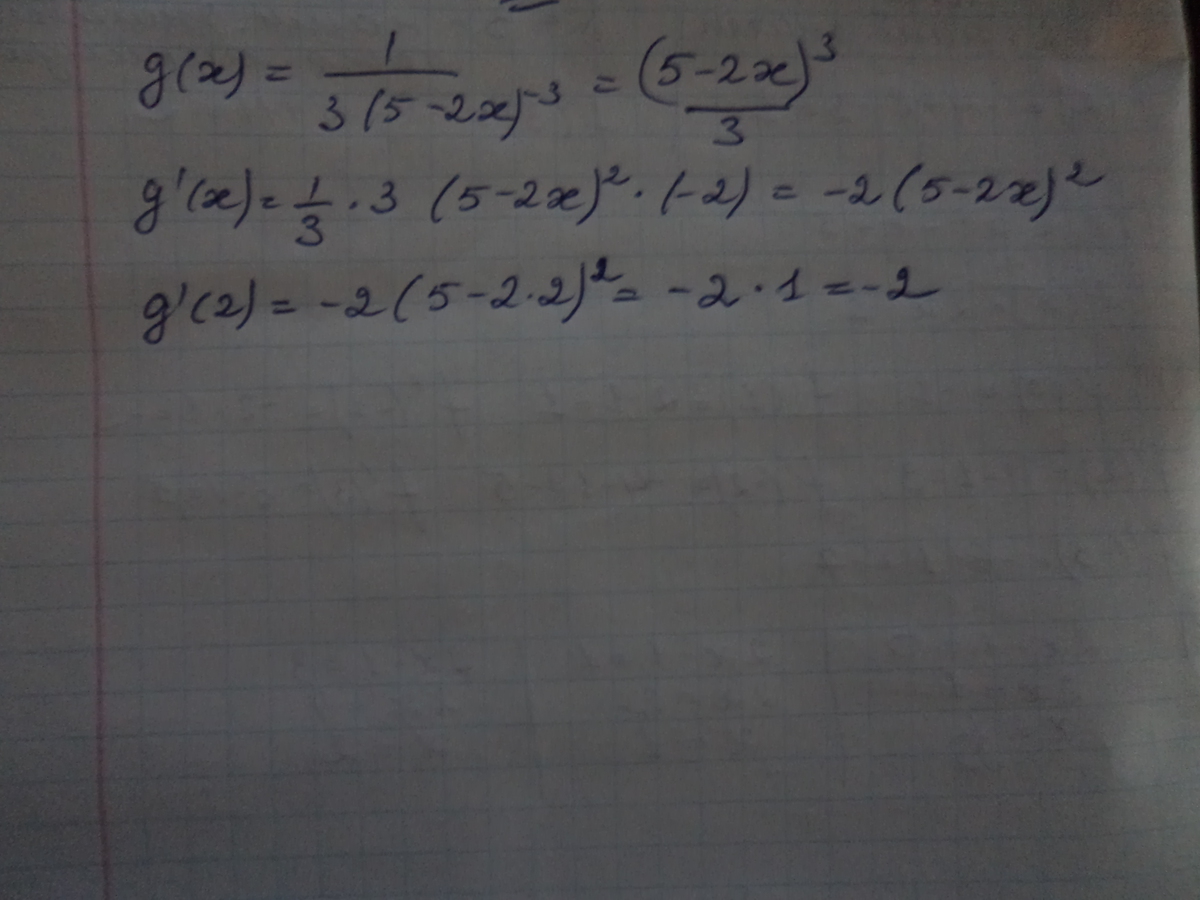 g(x) = 1 / 3(5-2x)^-3 = (5-2x)^3 / 3
g'(x) = 1/3 · 3 (5-2x)^2 · (-2) = -2(5-2x)^2
g'(2) = -2(5-2·2)^2 = -2·1 = -2